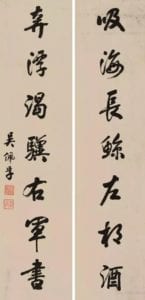 吸海長鯨左相酒
奔浮渴驥右軍書
吳佩孚